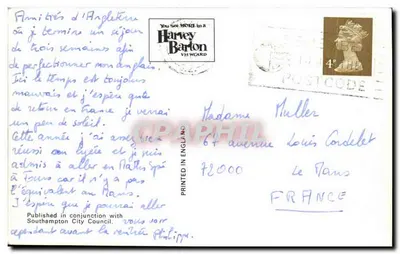 Amitiés d'Angleterre
où je termine un séjour
de trois semaines afin
de perfectionner mon anglais.
Ici le temps est toujours
mauvais et j'espère que
de retour en France je verrai
un peu de soleil.
Cette année j'ai assez bien
réussi au lycée et je suis
admis à aller en Math Spé
à Tours car il n'y a pas
l'équivalent au Mans.
J'espère que je pourrai aller
vous voir
cependant avant la rentrée Philippe.
Published in conjunction with
Southampton City Council.
PRINTED IN ENGLAND
You see MORE in a
Harvey
Barton
VIEWCARD
4P
POSTCODE
Madame Muller
67 avenue Louis Cordelet
72000 Le Mans
FRANCE
CPAPHIL.com